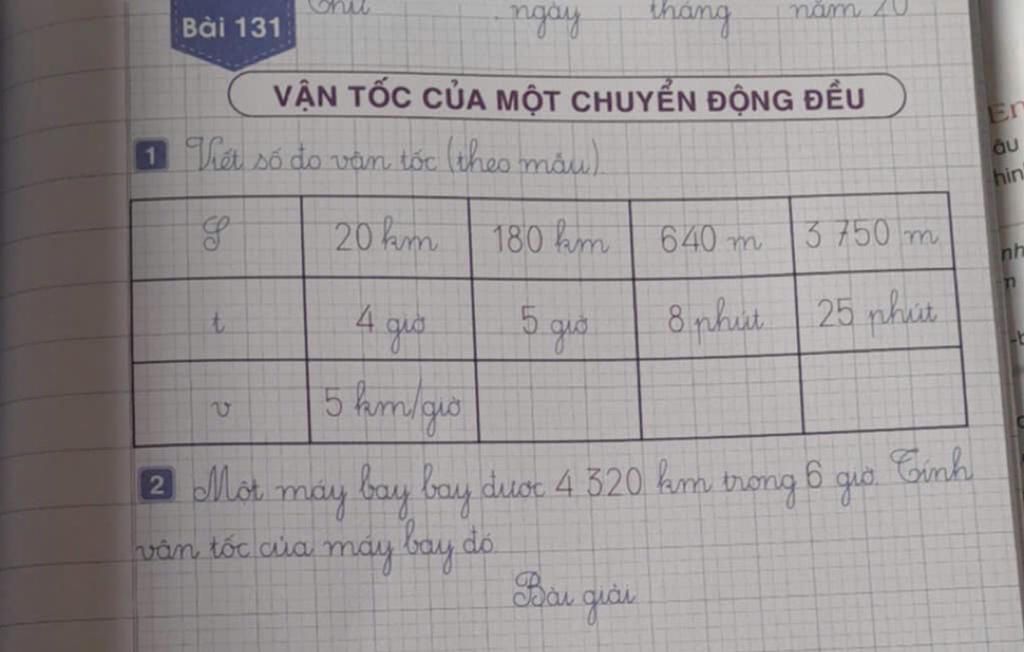 Thứ ngày tháng năm 20
Bài 131
VẬN TỐC CỦA MỘT CHUYỂN ĐỘNG ĐỀU
1 Viết số đo vận tốc (theo mẫu)
S 20 km 180 km 640 m 3 750 m
t 4 giờ 5 giờ 8 phút 25 phút
v 5 km/giờ
2 Một máy bay bay được 4 320 km trong 6 giờ. Tính
vận tốc của máy bay đó.
Bài giải